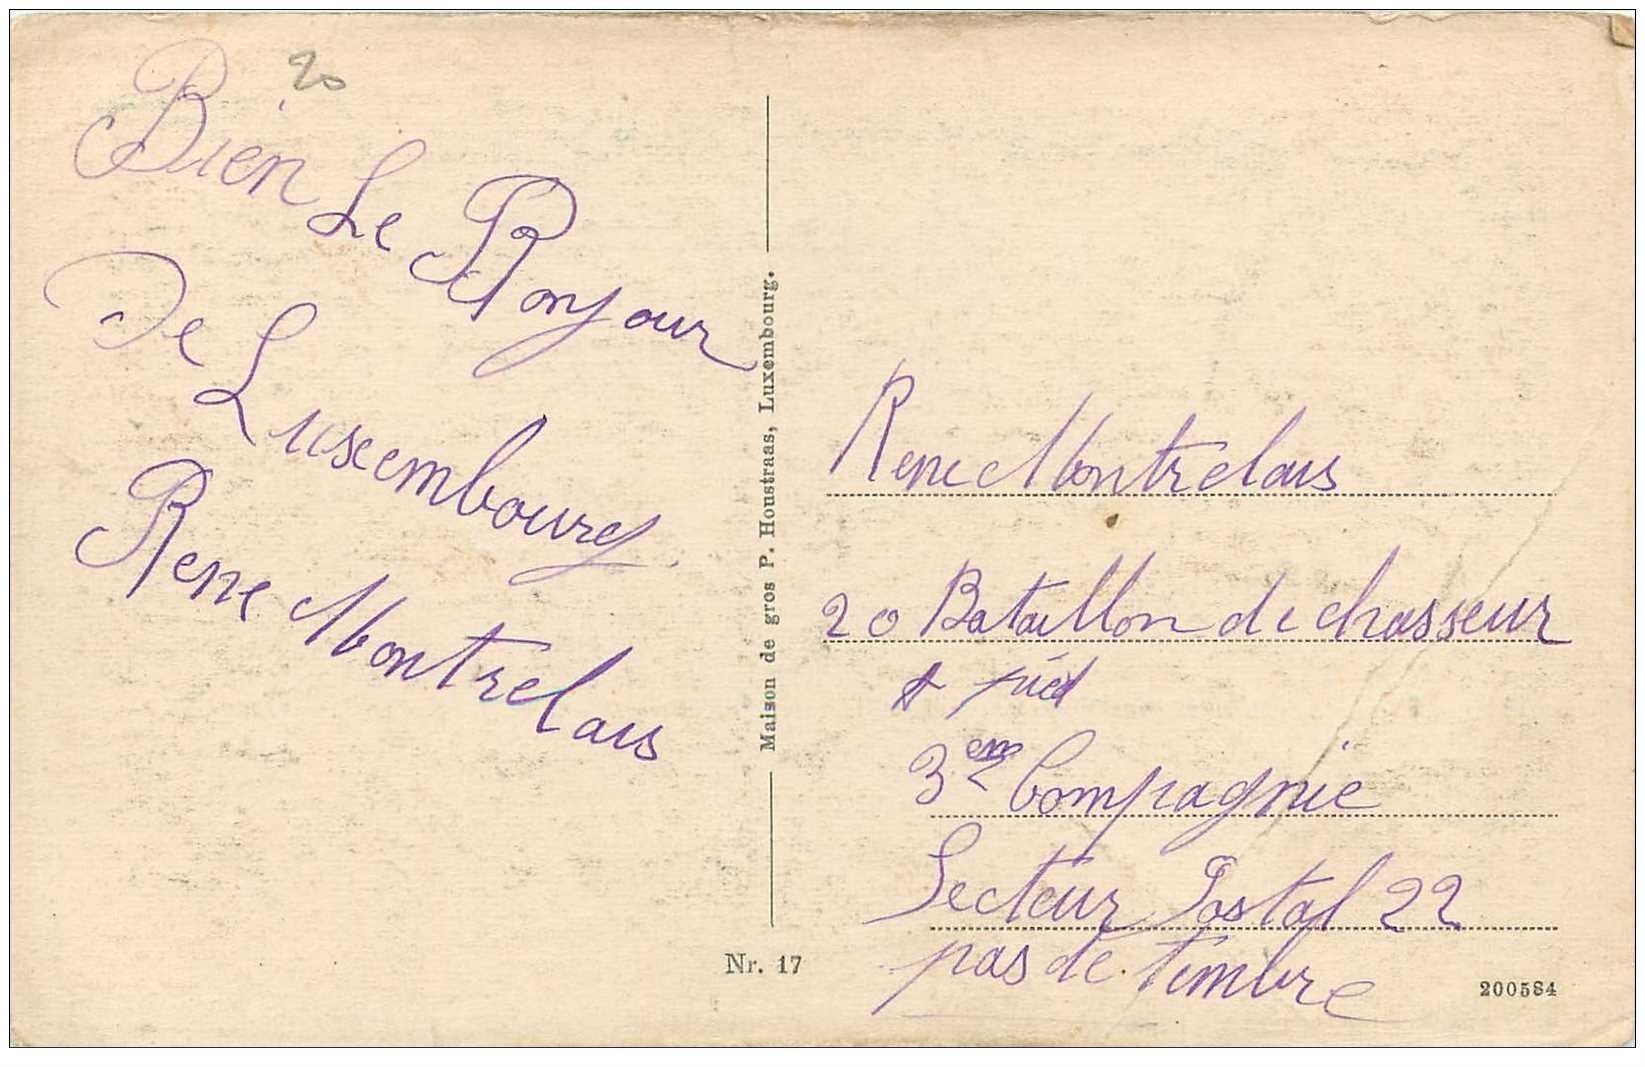 20
Bien Le Bonjour
De Luxembourg
Rene Montrelais
Maison de gros P. Houstraas, Luxembourg.
Nr. 17
Rene Montrelais
20 Bataillon de chasseur
A pied
3em Compagnie
Secteur Postal 22
pas de timbre
200584